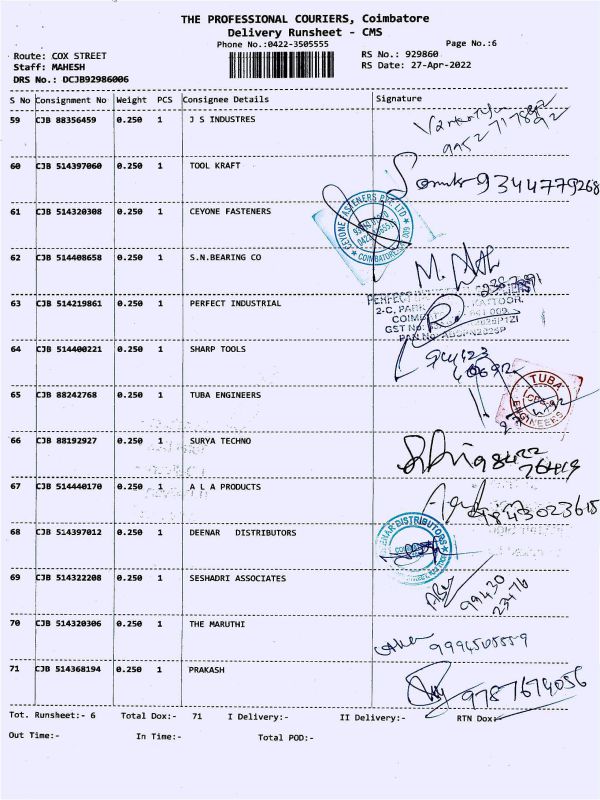 THE PROFESSIONAL COURIERS, Coimbatore
Delivery Runsheet - CMS
Phone No.:0422-3505555
Page No.:6
Route: COX STREET
RS No.: 929860
Staff: MAHESH
RS Date: 27-Apr-2022
DRS No.: DCJB92986006
S No Consignment No Weight PCS Consignee Details Signature
59 CJB 88356459 0.250 1 J S INDUSTRES
60 CJB 514397060 0.250 1 TOOL KRAFT
9344779268
61 CJB 514320308 0.250 1 CEYONE FASTENERS
CEYONE FASTENERS PVT LTD
62 CJB 514408658 0.250 1 S.N.BEARING CO
63 CJB 514219861 1 PERFECT INDUSTRIAL
64 CJB 514400221 0.250 1 SHARP TOOLS
65 CJB 88242768 0.250 1 TUBA ENGINEERS
TUBA
ENGINEERS
66 CJB 88192927 0.250 1 SURYA TECHNO
67 CJB 514440170 0.250 1 A L A PRODUCTS
9843023615
68 CJB 514397012 0.250 1 DEENAR DISTRIBUTORS
DEENAR DISTRIBUTORS
69 CJB 514322208 0.250 1 SESHADRI ASSOCIATES
99430
23476
70 CJB 514320306 0.250 1 THE MARUTHI
71 CJB 514368194 0.250 1 PRAKASH
9787674056
Tot. Runsheet:- 6 Total Dox:- 71 I Delivery:- II Delivery:- RTN Dox:
Out Time:- In Time:- Total POD:-